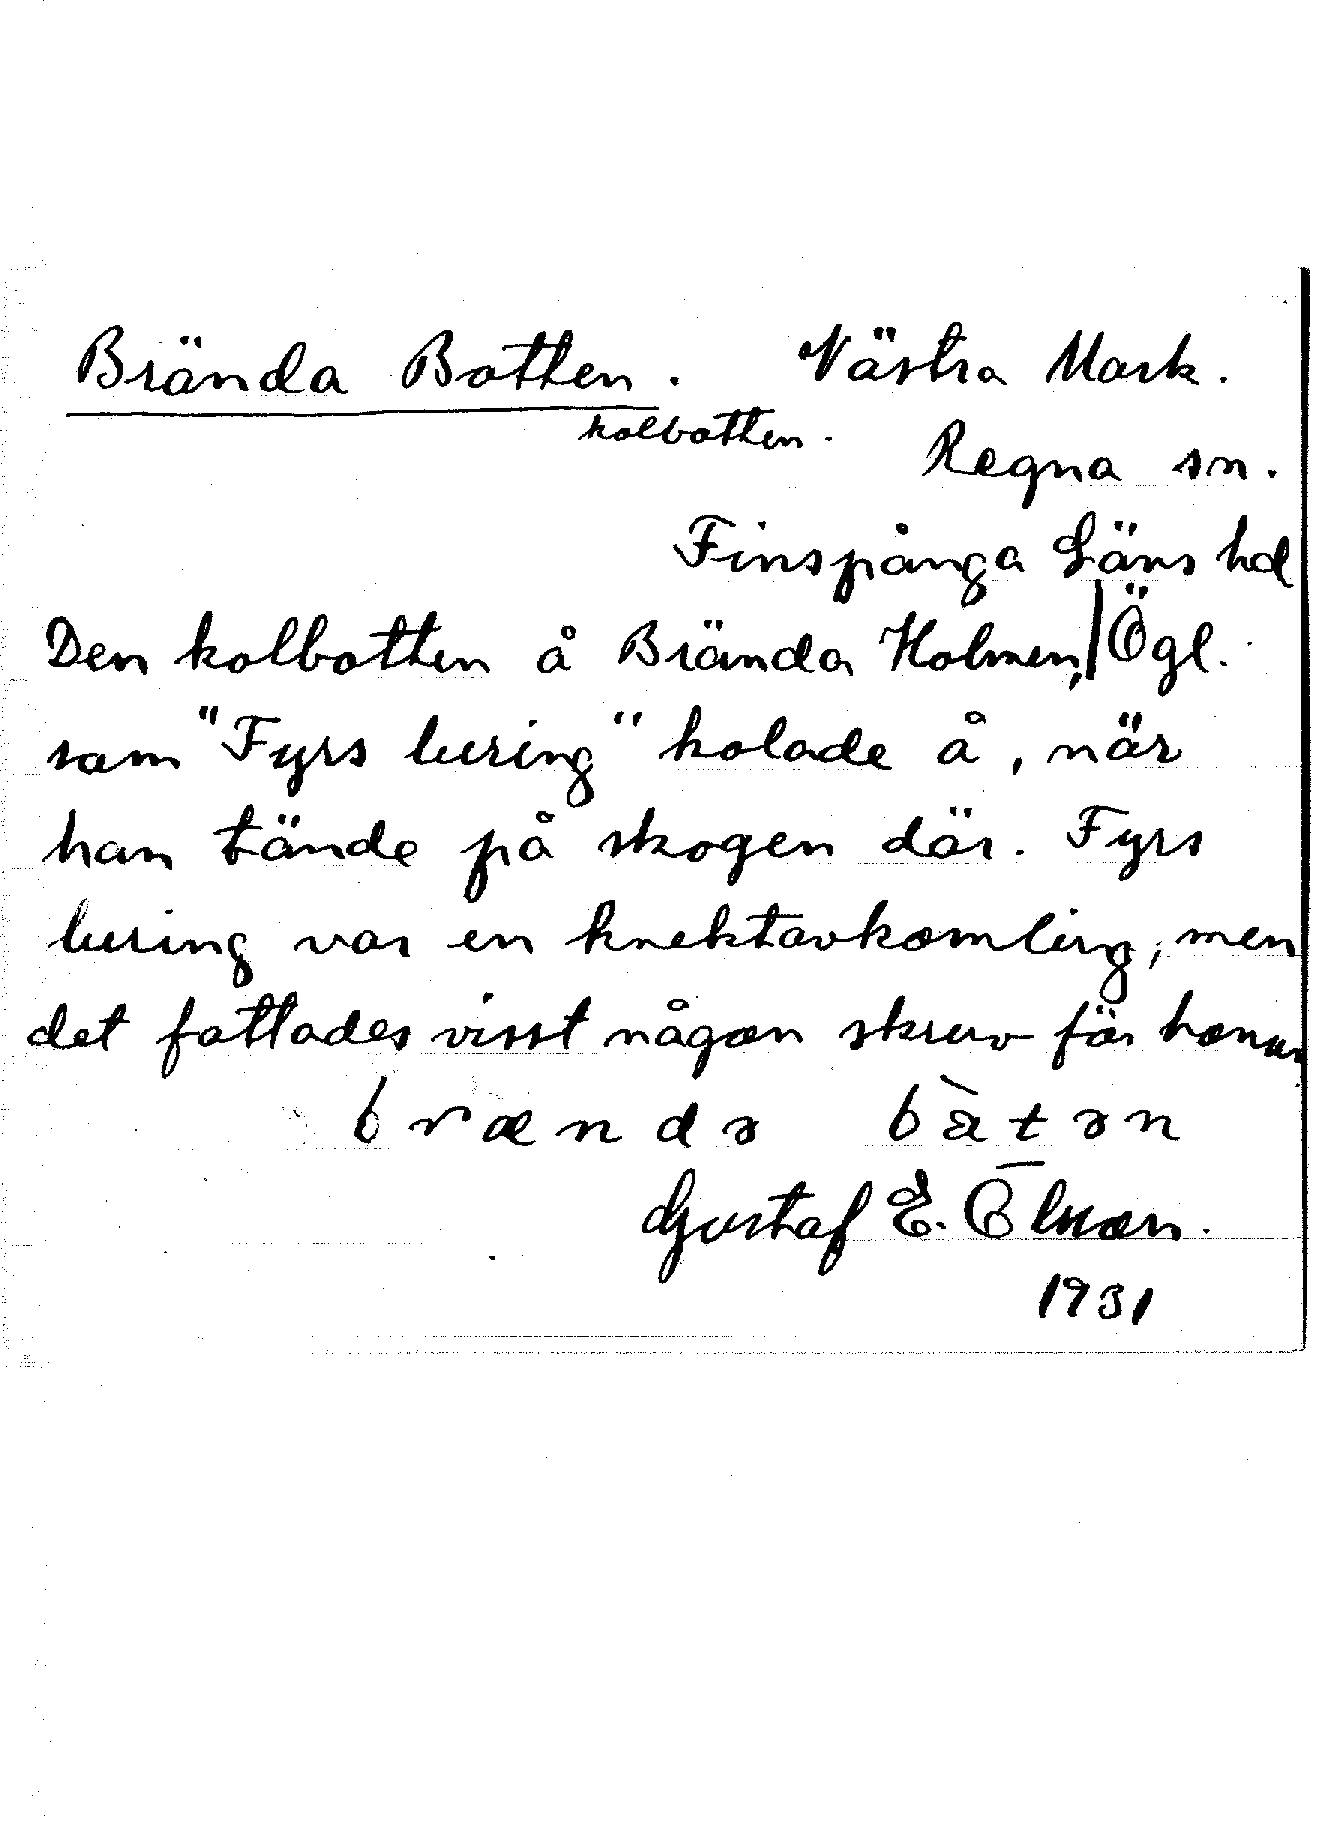 Brända Botten. Västra Mark.
kolbotten.
Regna sn.
Finspånga Läns hd
Ögl.
Den kolbotten å Brända Holmen,
som "Fyrs luring" kolade å, när
han tände på skogen där. Fyrs
luring var en knektavkomling, men
det fattades visst någon skruv för honom
brændə bàtən
Gustaf E.
1931